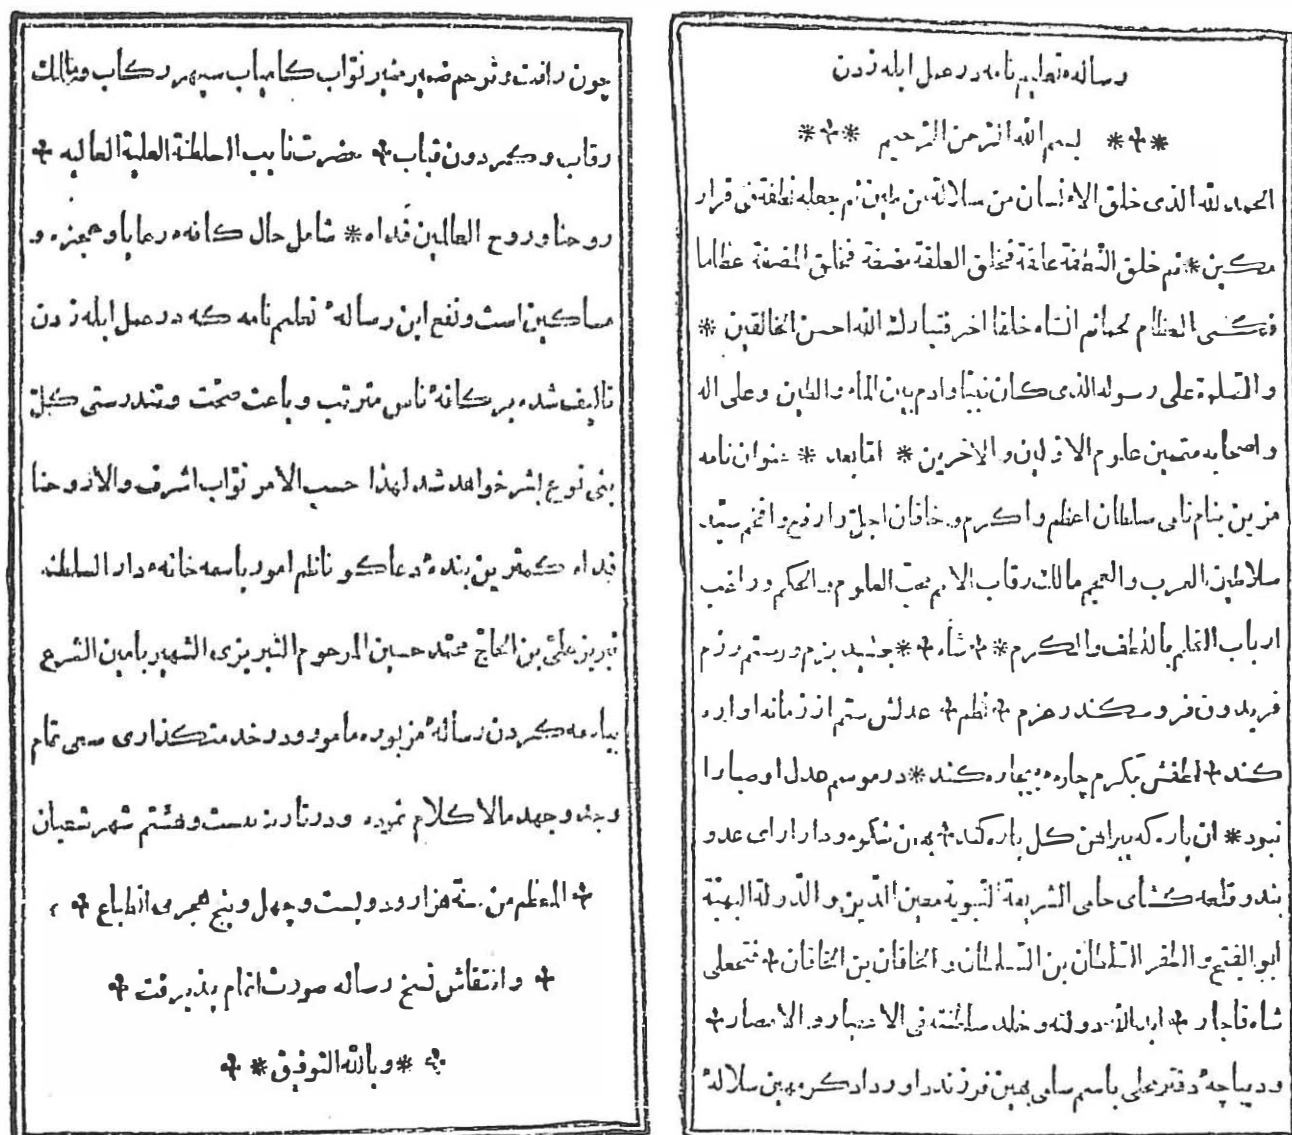 رساله تعلیم نامه در عمل ابله زدن
بسم الله الرحمن الرحیم
الحمد لله الذی خلق الاانسان من سلالة من طین ثم جعله نطفة فی قرار
مکین * ثم خلق النطفة علقة فخلق العلقة مضغة فخلق المضغة عظاما
فکسی العظام لحما ثم انشاه خلقا اخر فتبارك الله احسن الخالقین *
والصلوة علی رسوله الذی کان نبیا وادم بین الماء والطین وعلی اله
واصحابه متممین علوم الاولین والاخرین * امّا بعد * عنوان نامه
مزین بنام نامی سلطان اعظم واکرم و خاقان اجلّ وارفع وافخم سیّد
سلاطین العرب والعجم مالك رقاب الامم محبّ العلوم والحکم وراغب
ارباب القلم باللطف والکرم * شاه * جمشید بزم ورستم رزم
فریدون فر وسکندر عزم نظم عدلش ستم از زمانه اواره
کند لطفش بکرم چارهٔ بیچاره کند * در موسم عدل او صبا را
نبود * ان یاره که پیراهن کل پاره کند بهمن شکوه ودارا رای عدو
بند وقلعه کشای حامی الشریعة النّبویة معین الدّین والدّولة البهیّة
ابو الفتح والظفر السّلطان بن السّلطان والخاقان بن الخاقان فتحعلی
شاه قاجار اید الله دولته وخلد سلطنته فی الاعصار والامصار
ودیباچهٔ دفتر محلی باسم سامی بهین فرزند داور دادکر مهین سلالهٔ
چون رافت وترحم ضمیر منیر نوّاب کامیاب سپهر رکاب ومالك
رقاب وکردون قباب حضرت نایب السلطنة العلیة العالیه
روحنا وروح العالمین فداه * شامل حال کافه رعایا وعجزه و
مساکین است ونفع این رسالهٔ تعلیم نامه که در عمل ابله زدن
تالیف شده بر کافهٔ ناس مترتب وباعث صحّت وتندرستی کلّ
بنی نوع بشر خواهد شد لهذا حسب الامر نوّاب اشرف والا روحنا
فداه کمترین بندهٔ دعاکو ناظم امور باسمه خانه دار السلطنه
تبریز علی بن الحاجّ محمّد حسین المرحوم التبریزی الشهیر بامین الشرع
بباسمه کردن رسالهٔ مزبوره مامور ودر خدمتکذاری سعی تمام
وجد وجهد مالا کلام نموده ودر تاریخ بیست وهشتم شهر شعبان
المعظم من سنة هزار ودویست وچهل وپنج هجری انطباع
وانتقاش نسخ رساله صورت اتمام پذیرفت
* وبالله التوفیق *